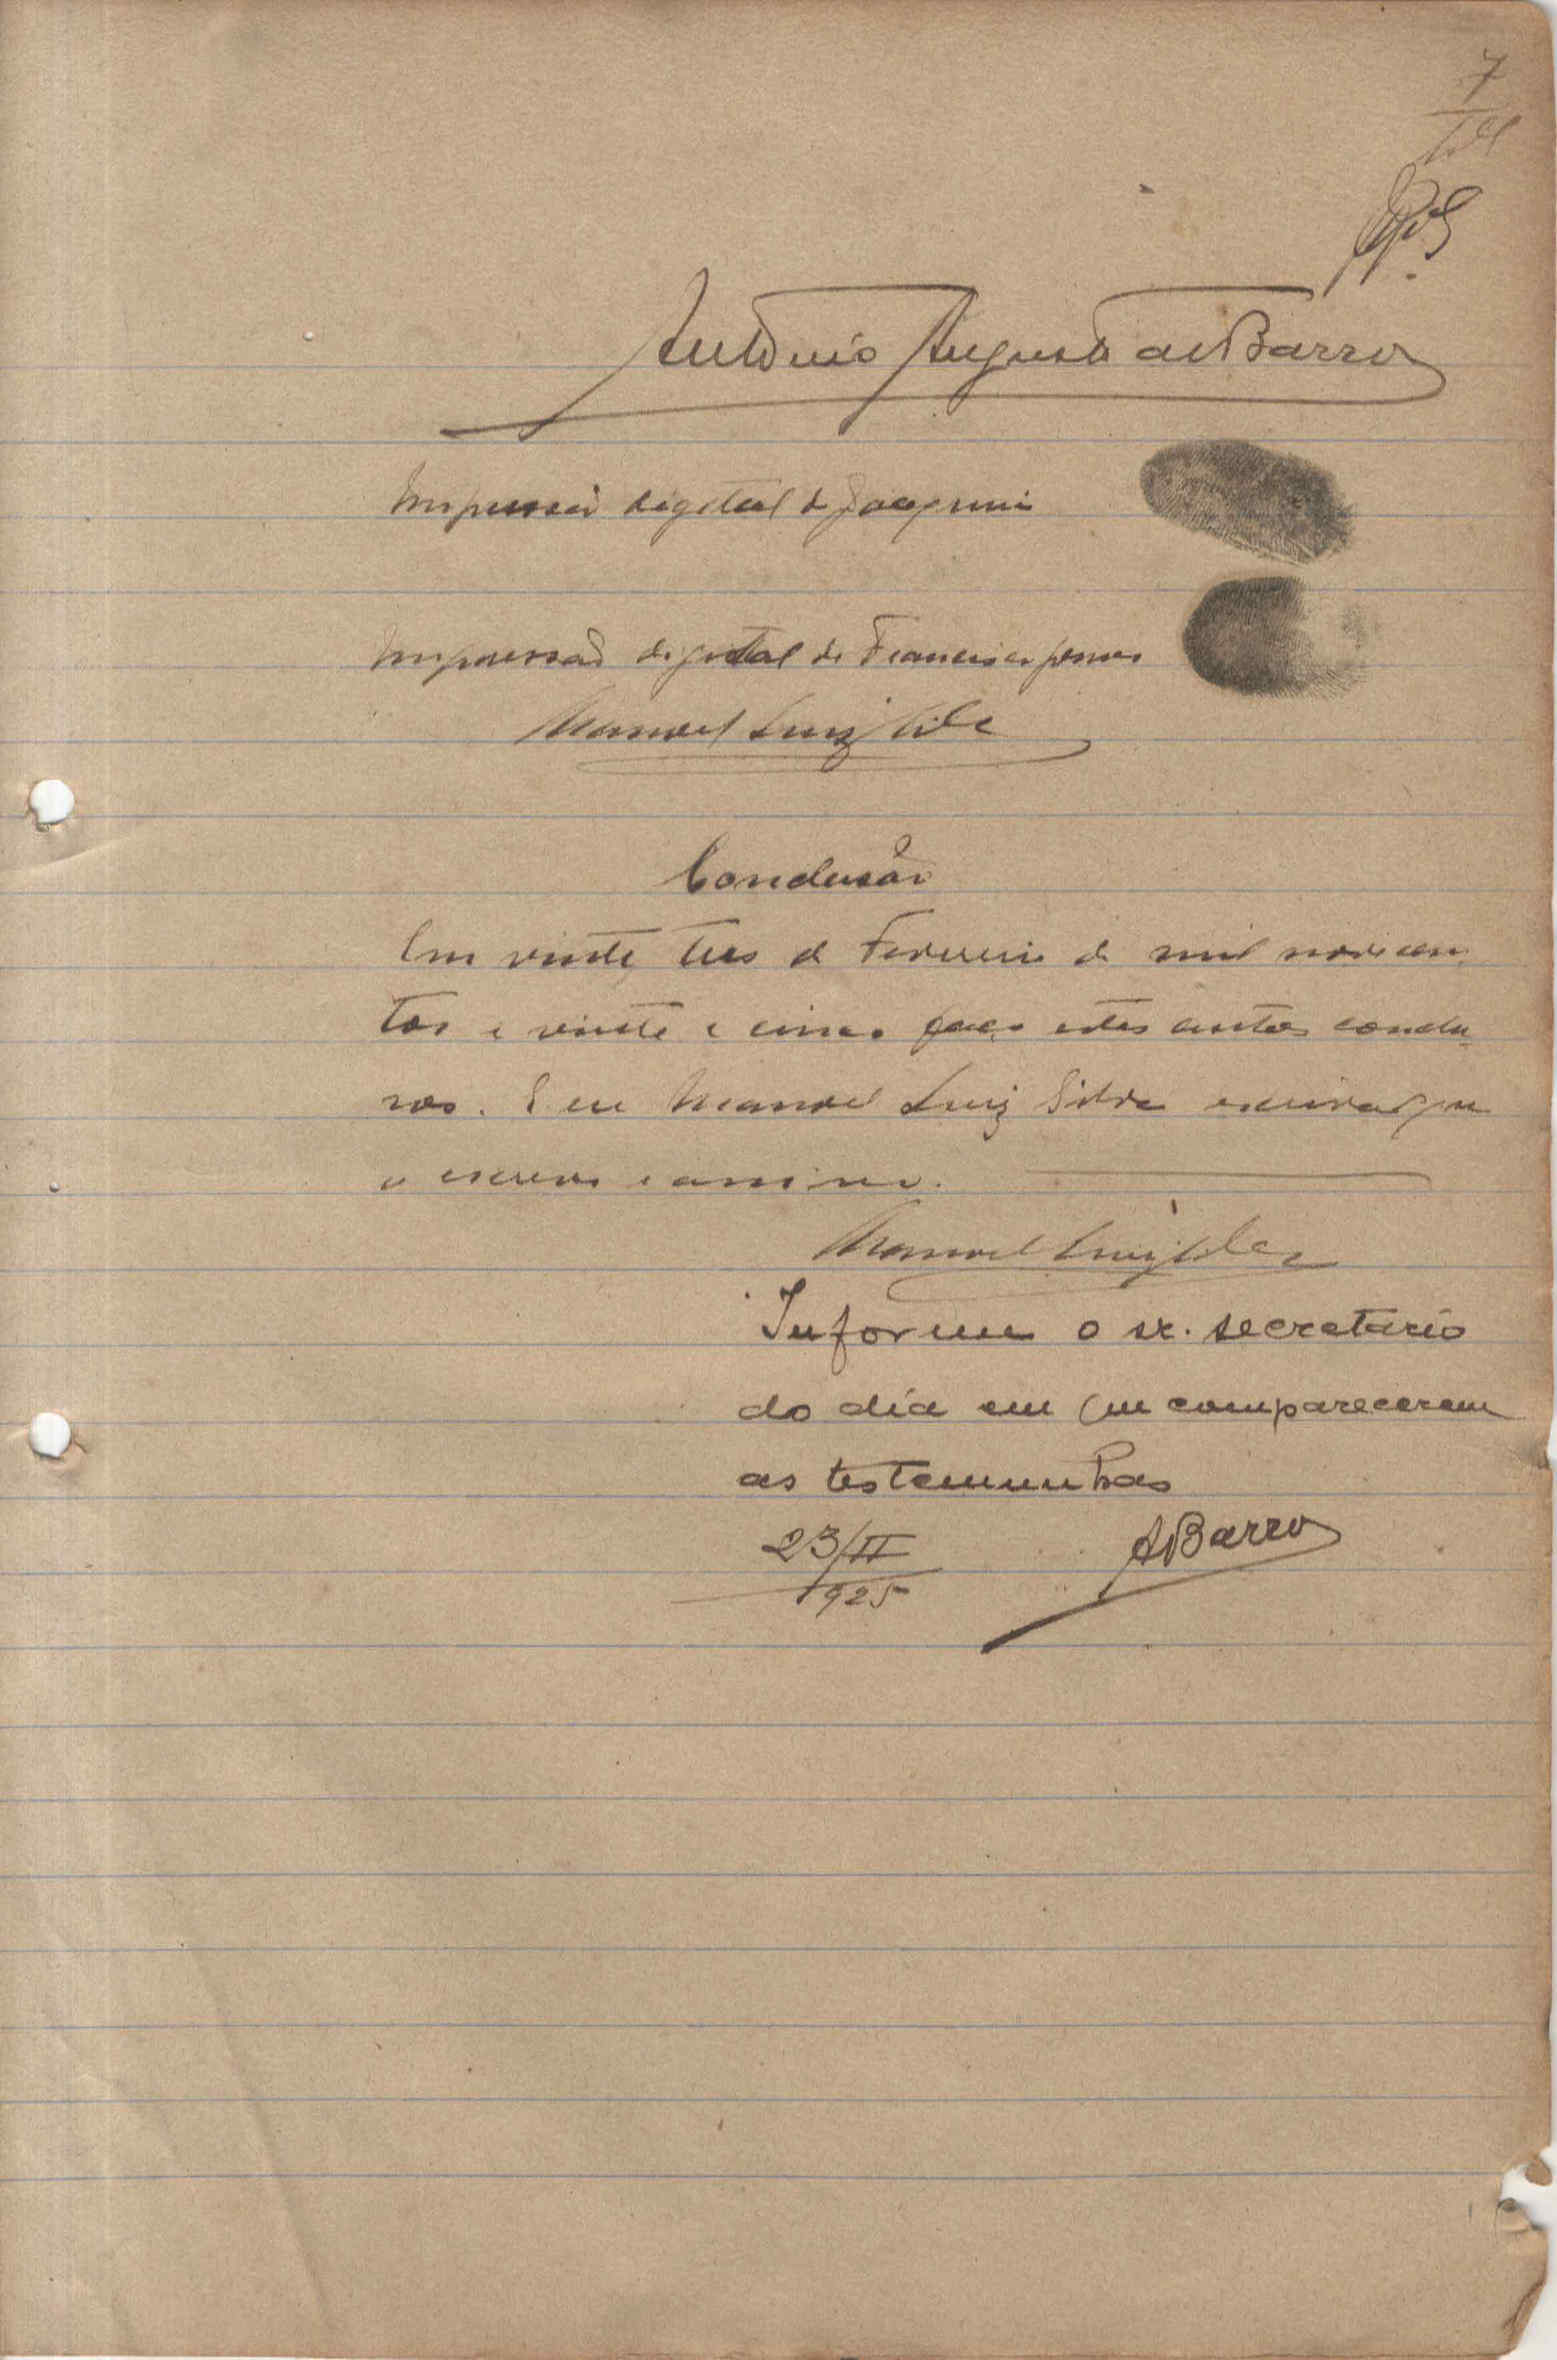 7
António Augusto de Barros
Impressão digital de Joaquim
Impressão digital de Francisco
Manoel Luiz Silva
Conclusão
Em vinte, tres de Fevereiro de mil novecen
tos e vinte e cinco faço estes autos conclu
sos. E eu Manoel Luiz Silva escrivão que
o escrevi e assino.
Manoel Luiz Silva
Informe o sr. secretario
do dia em que compareceram
as testemunhas
23/II
1925
ABarros